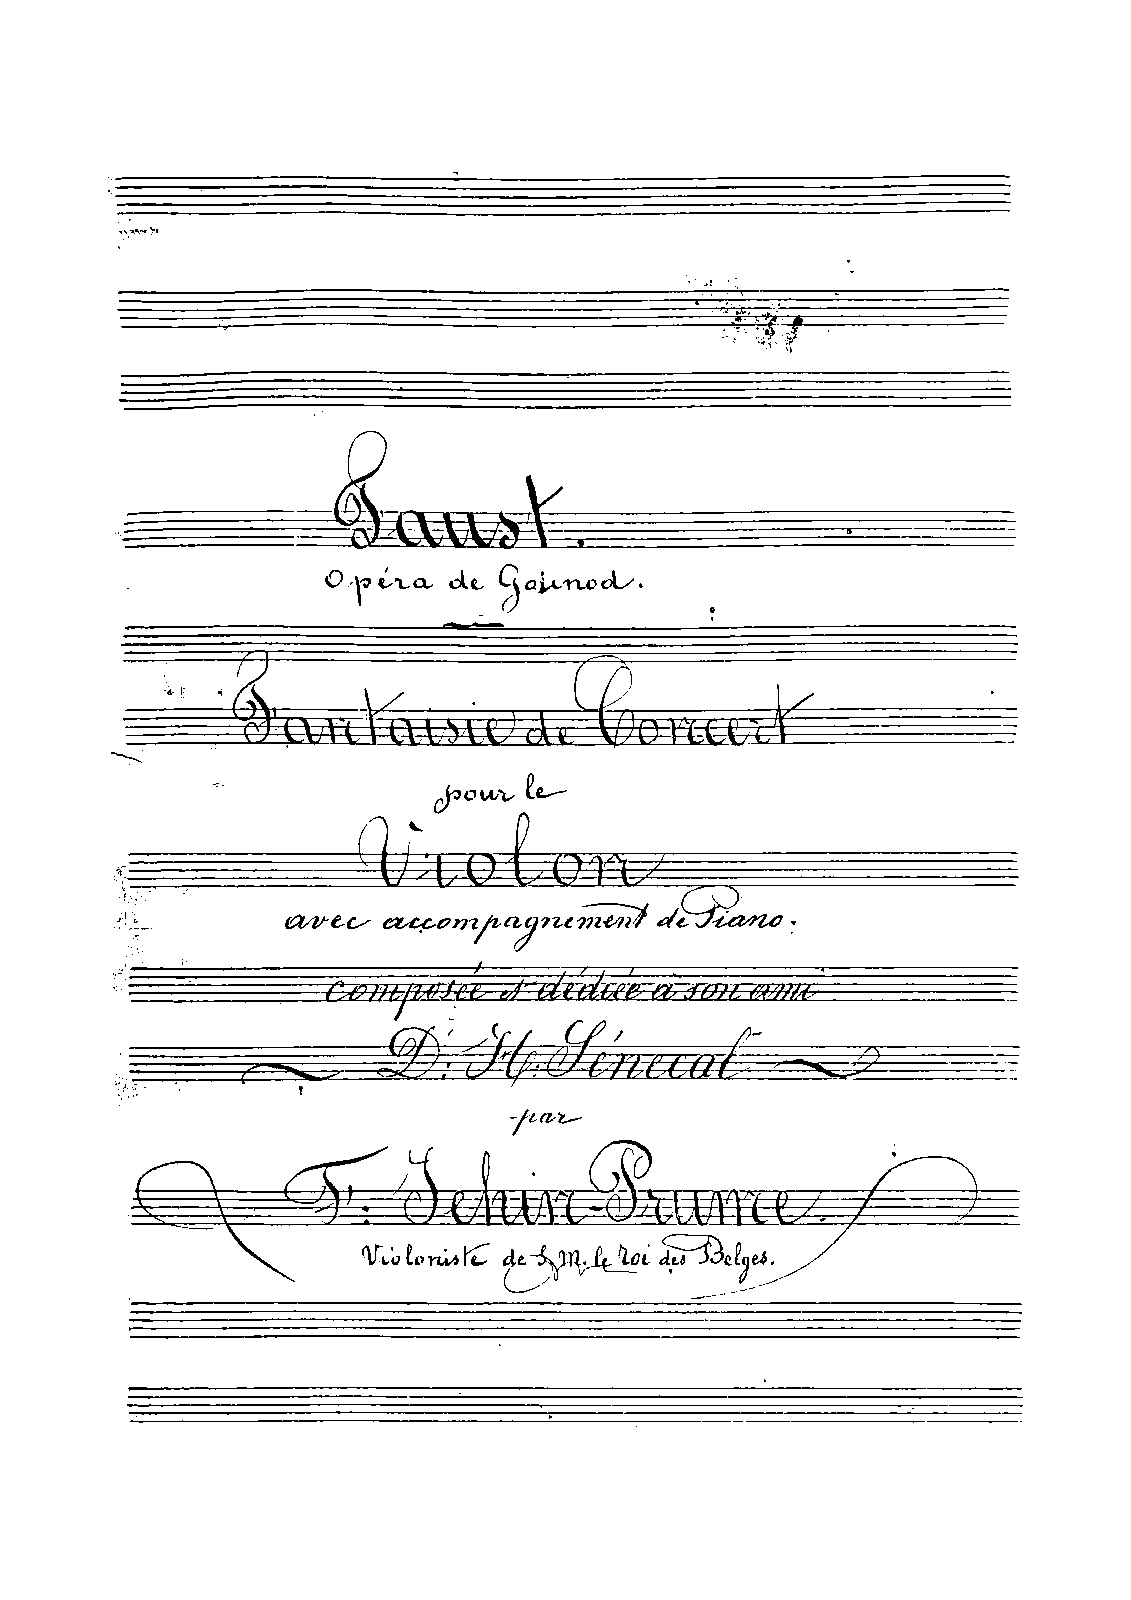 Faust.
Opéra de Gounod.
Fantaisie de Concert
pour le
Violon
avec accompagnement de Piano.
composée et dédiée à son ami
Dr. H. Sénecal
par
F. Jehin-Prume.
Violoniste de S. M. le roi des Belges.